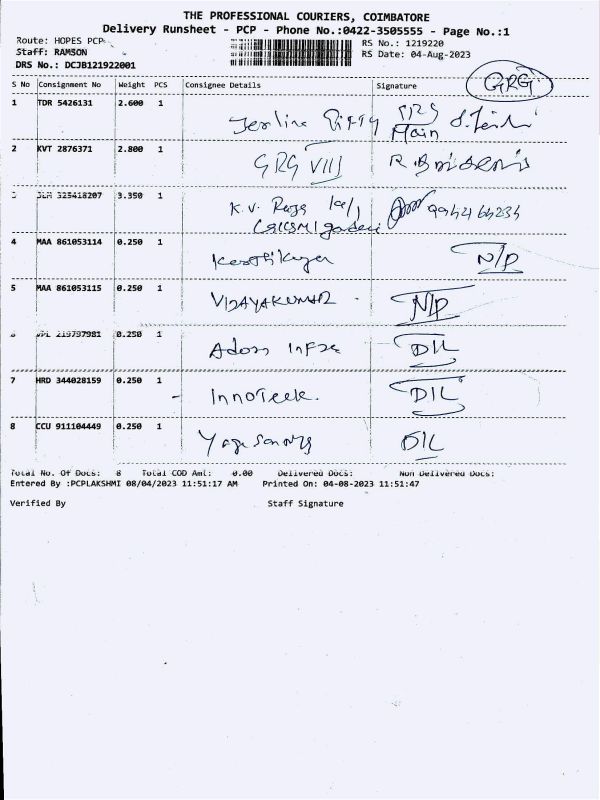 THE PROFESSIONAL COURIERS, COIMBATORE
Delivery Runsheet - PCP - Phone No.:0422-3505555 - Page No.:1
Route: HOPES PCP
RS No.: 1219220
Staff: RAMSON
RS Date: 04-Aug-2023
DRS No.: DCJB121922001
GRG
S No Consignment No Weight PCS Consignee Details Signature
1 TDR 5426131 2.600 1
Main
2 KVT 2876371 2.800 1 GRG VIII
325418207 3.350 1 K.V. 
4 MAA 861053114 0.250 1 Keerthikeya N/P
5 MAA 861053115 0.250 1 VIJAYAKUMAR N/P
219797981 0.250 1 Adors Infra DIL
7 HRD 344028159 0.250 1 - Innoteek. DIL
8 CCU 911104449 0.250 1 DIL
Total No. Of Docs: 8 Total COD Amt: 0.00 Delivered Docs: Non Delivered Docs:
Entered By :PCPLAKSHMI 08/04/2023 11:51:17 AM Printed On: 04-08-2023 11:51:47
Verified By Staff Signature